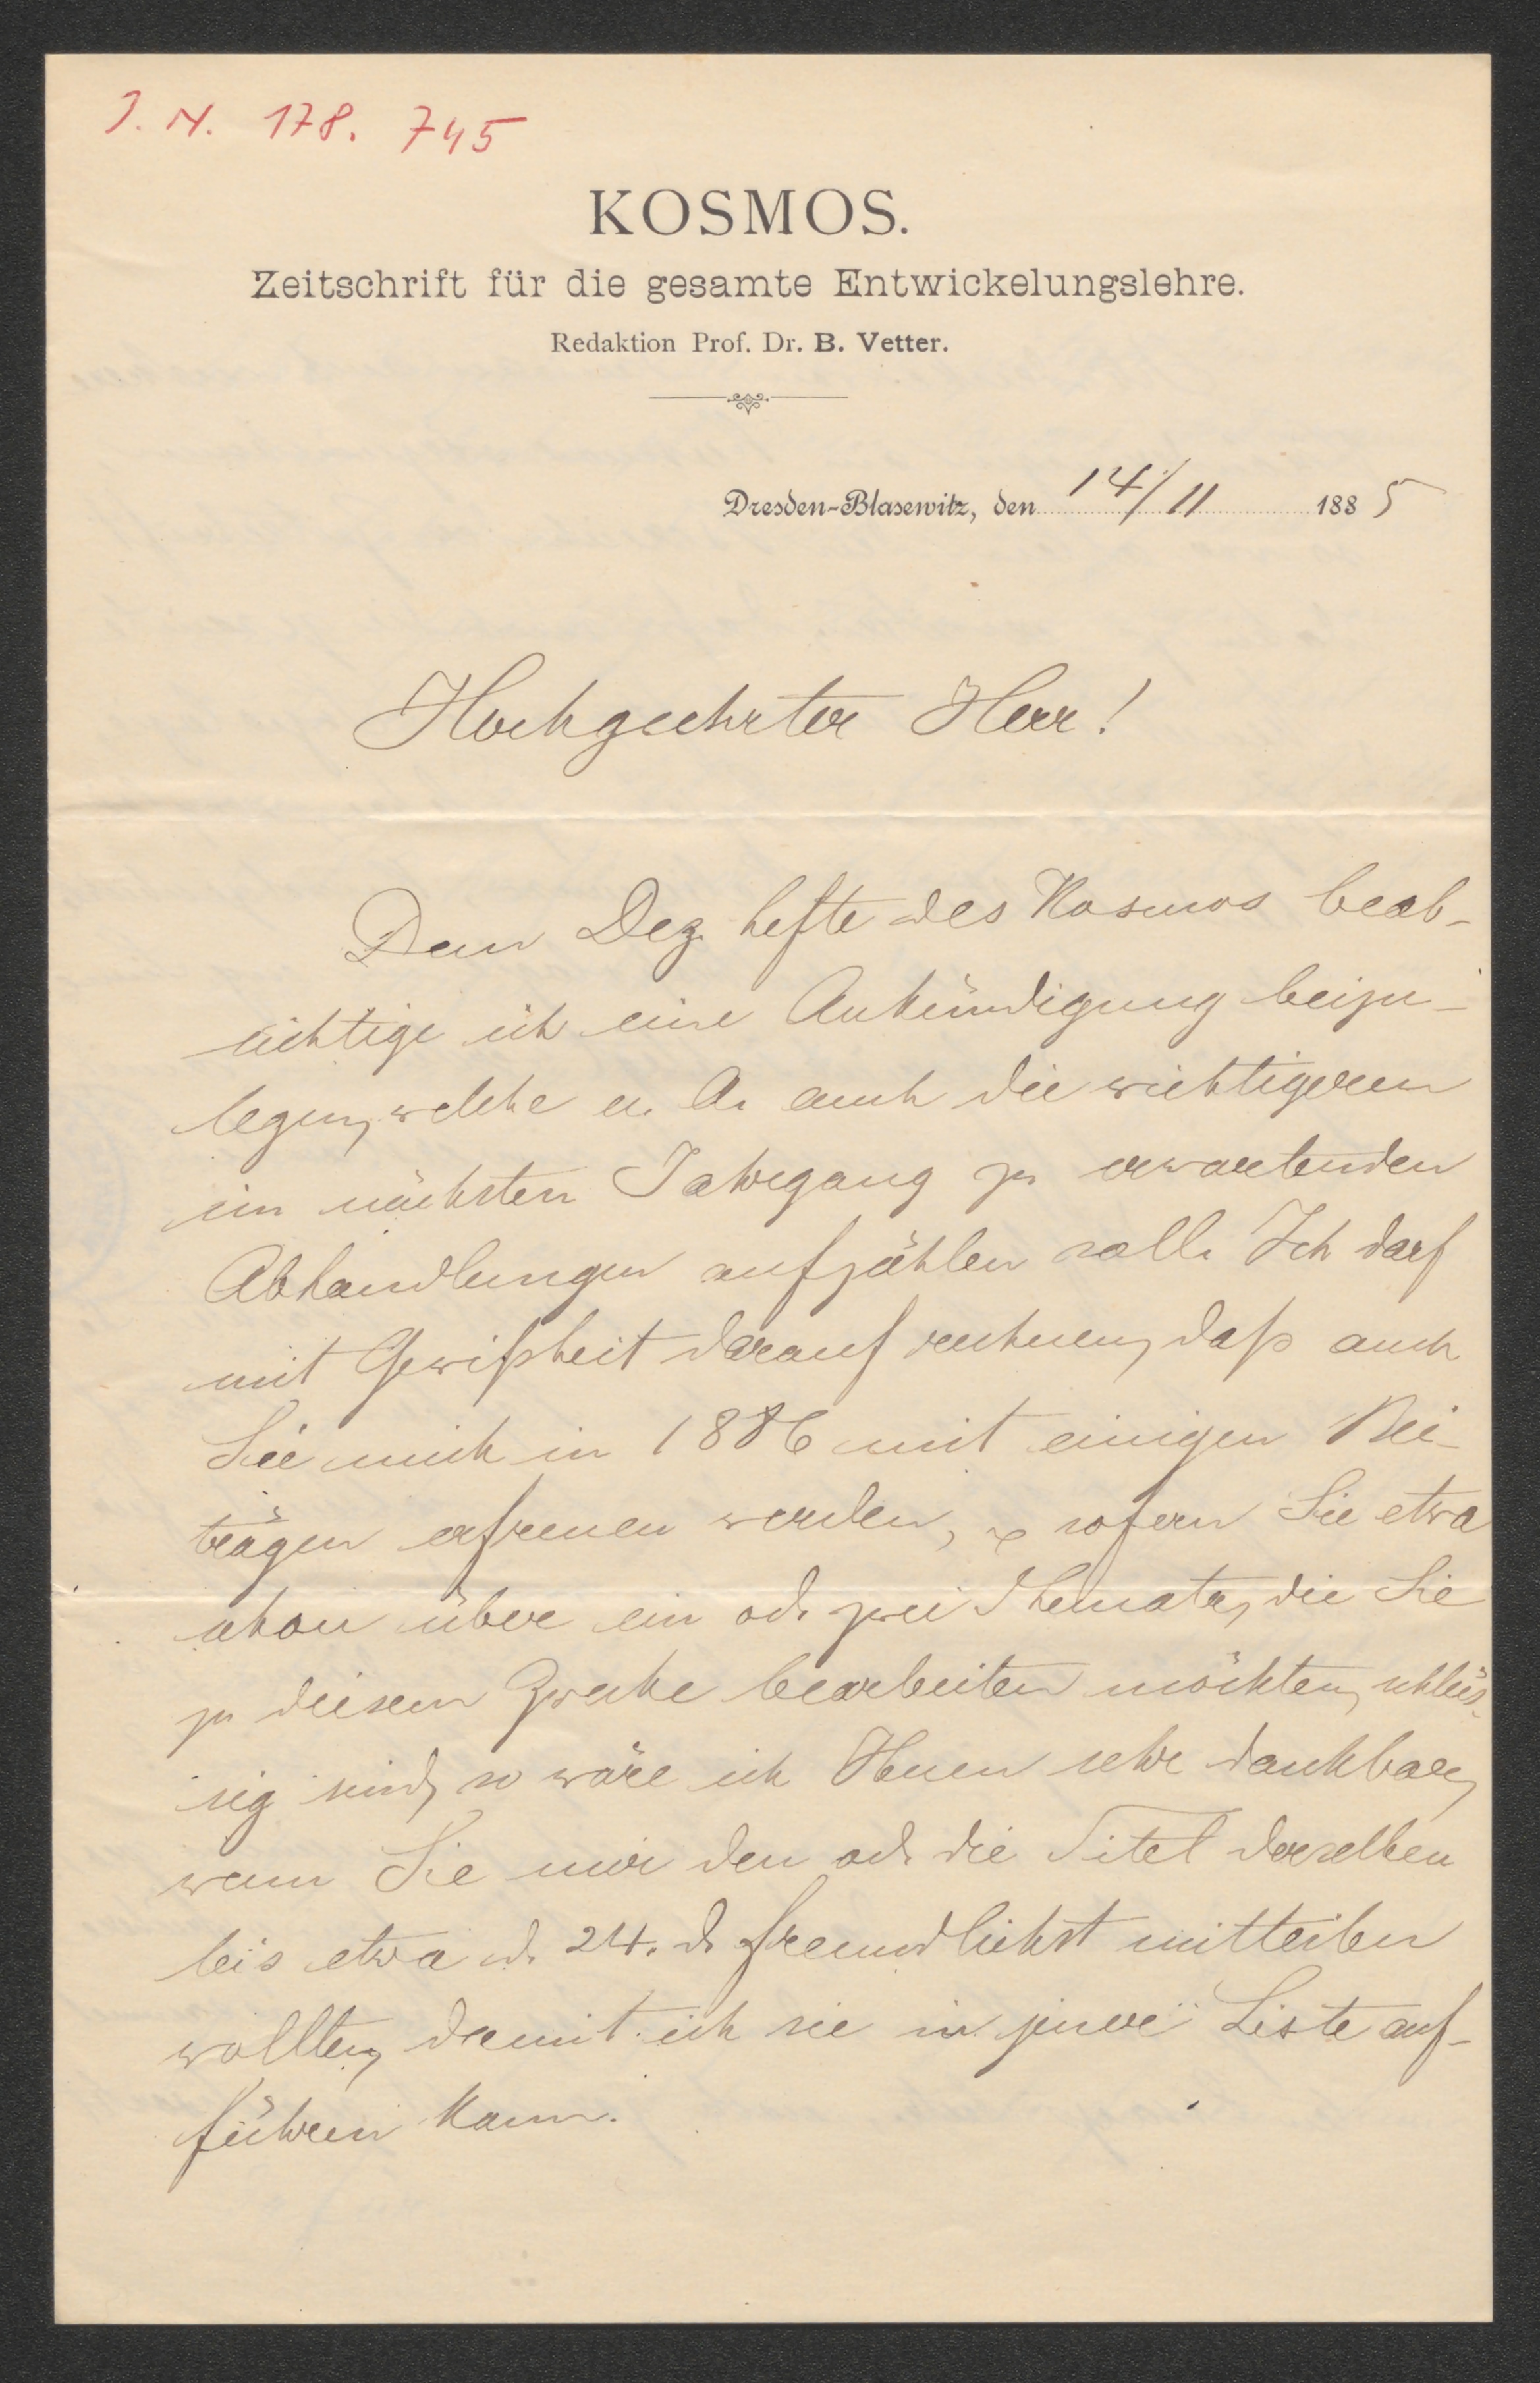 J. N. 178. 745
KOSMOS.
Zeitschrift für die gesamte Entwickelungslehre.
Redaktion Prof. Dr. B. Vetter.
Dresden-Blasewitz, den 14/11 1885
Hochgeehrter Herr!
Dem Dez. hefte des Kosmos beab-
sichtige ich eine Ankündigung beizu-
legen, welche u. A. auch die wichtigeren
im nächsten Jahrgang zu erwartenden
Abhandlungen aufzählen soll. Ich darf
mit Gewißheit darauf rechnen, daß auch
Sie mich in 1886 mit einigen Bei-
trägen erfreuen werden, & sofern Sie etwa
schon über ein od. zwei Themata, die Sie
zu diesem Zwecke bearbeiten möchten, schlüs-
sig sind, so wäre ich Ihnen sehr dankbar,
wenn Sie mir den od. die Titel derselben
bis etwa d. 24. d. freundlichst mitteilen
wollten, damit ich sie in jener Liste auf-
führen kann.